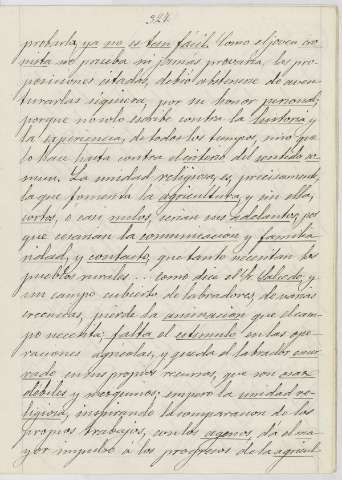 324.
probarla, ya no es tan fácil. Como el joven
no prueba ni jamás probaría, las pro-
posiciones citadas, debió abstenerse de aven-
turarlas siquiera, por su honor personal;
porque no solo escribe contra la historia y
la experiencia, de todos los tiempos, sino que
lo hace hasta contra el criterio del sentido co-
mun. La unidad religiosa, es, precisamente,
la que fomenta la agricultura, y sin ella,
cortos, o casi nulos, serían sus adelantos, por
que cesarían la comunicación y familia
ridad, y contacto, que tanto necesitan los
pueblos rurales... Como dice el Sr. y
un campo cubierto de labradores, de varias
creencias, pierde la animación que el cam-
po necesita; falta el estímulo en las ope-
raciones agrícolas, y queda el labrador
en sus propios recursos, que son mas
débiles y mezquinos; empero la unidad re-
ligiosa, inspirando la comparacion de los
propios trabajos, con los agenos, dá el ma-
yor impulso á los progresos de la agricul-